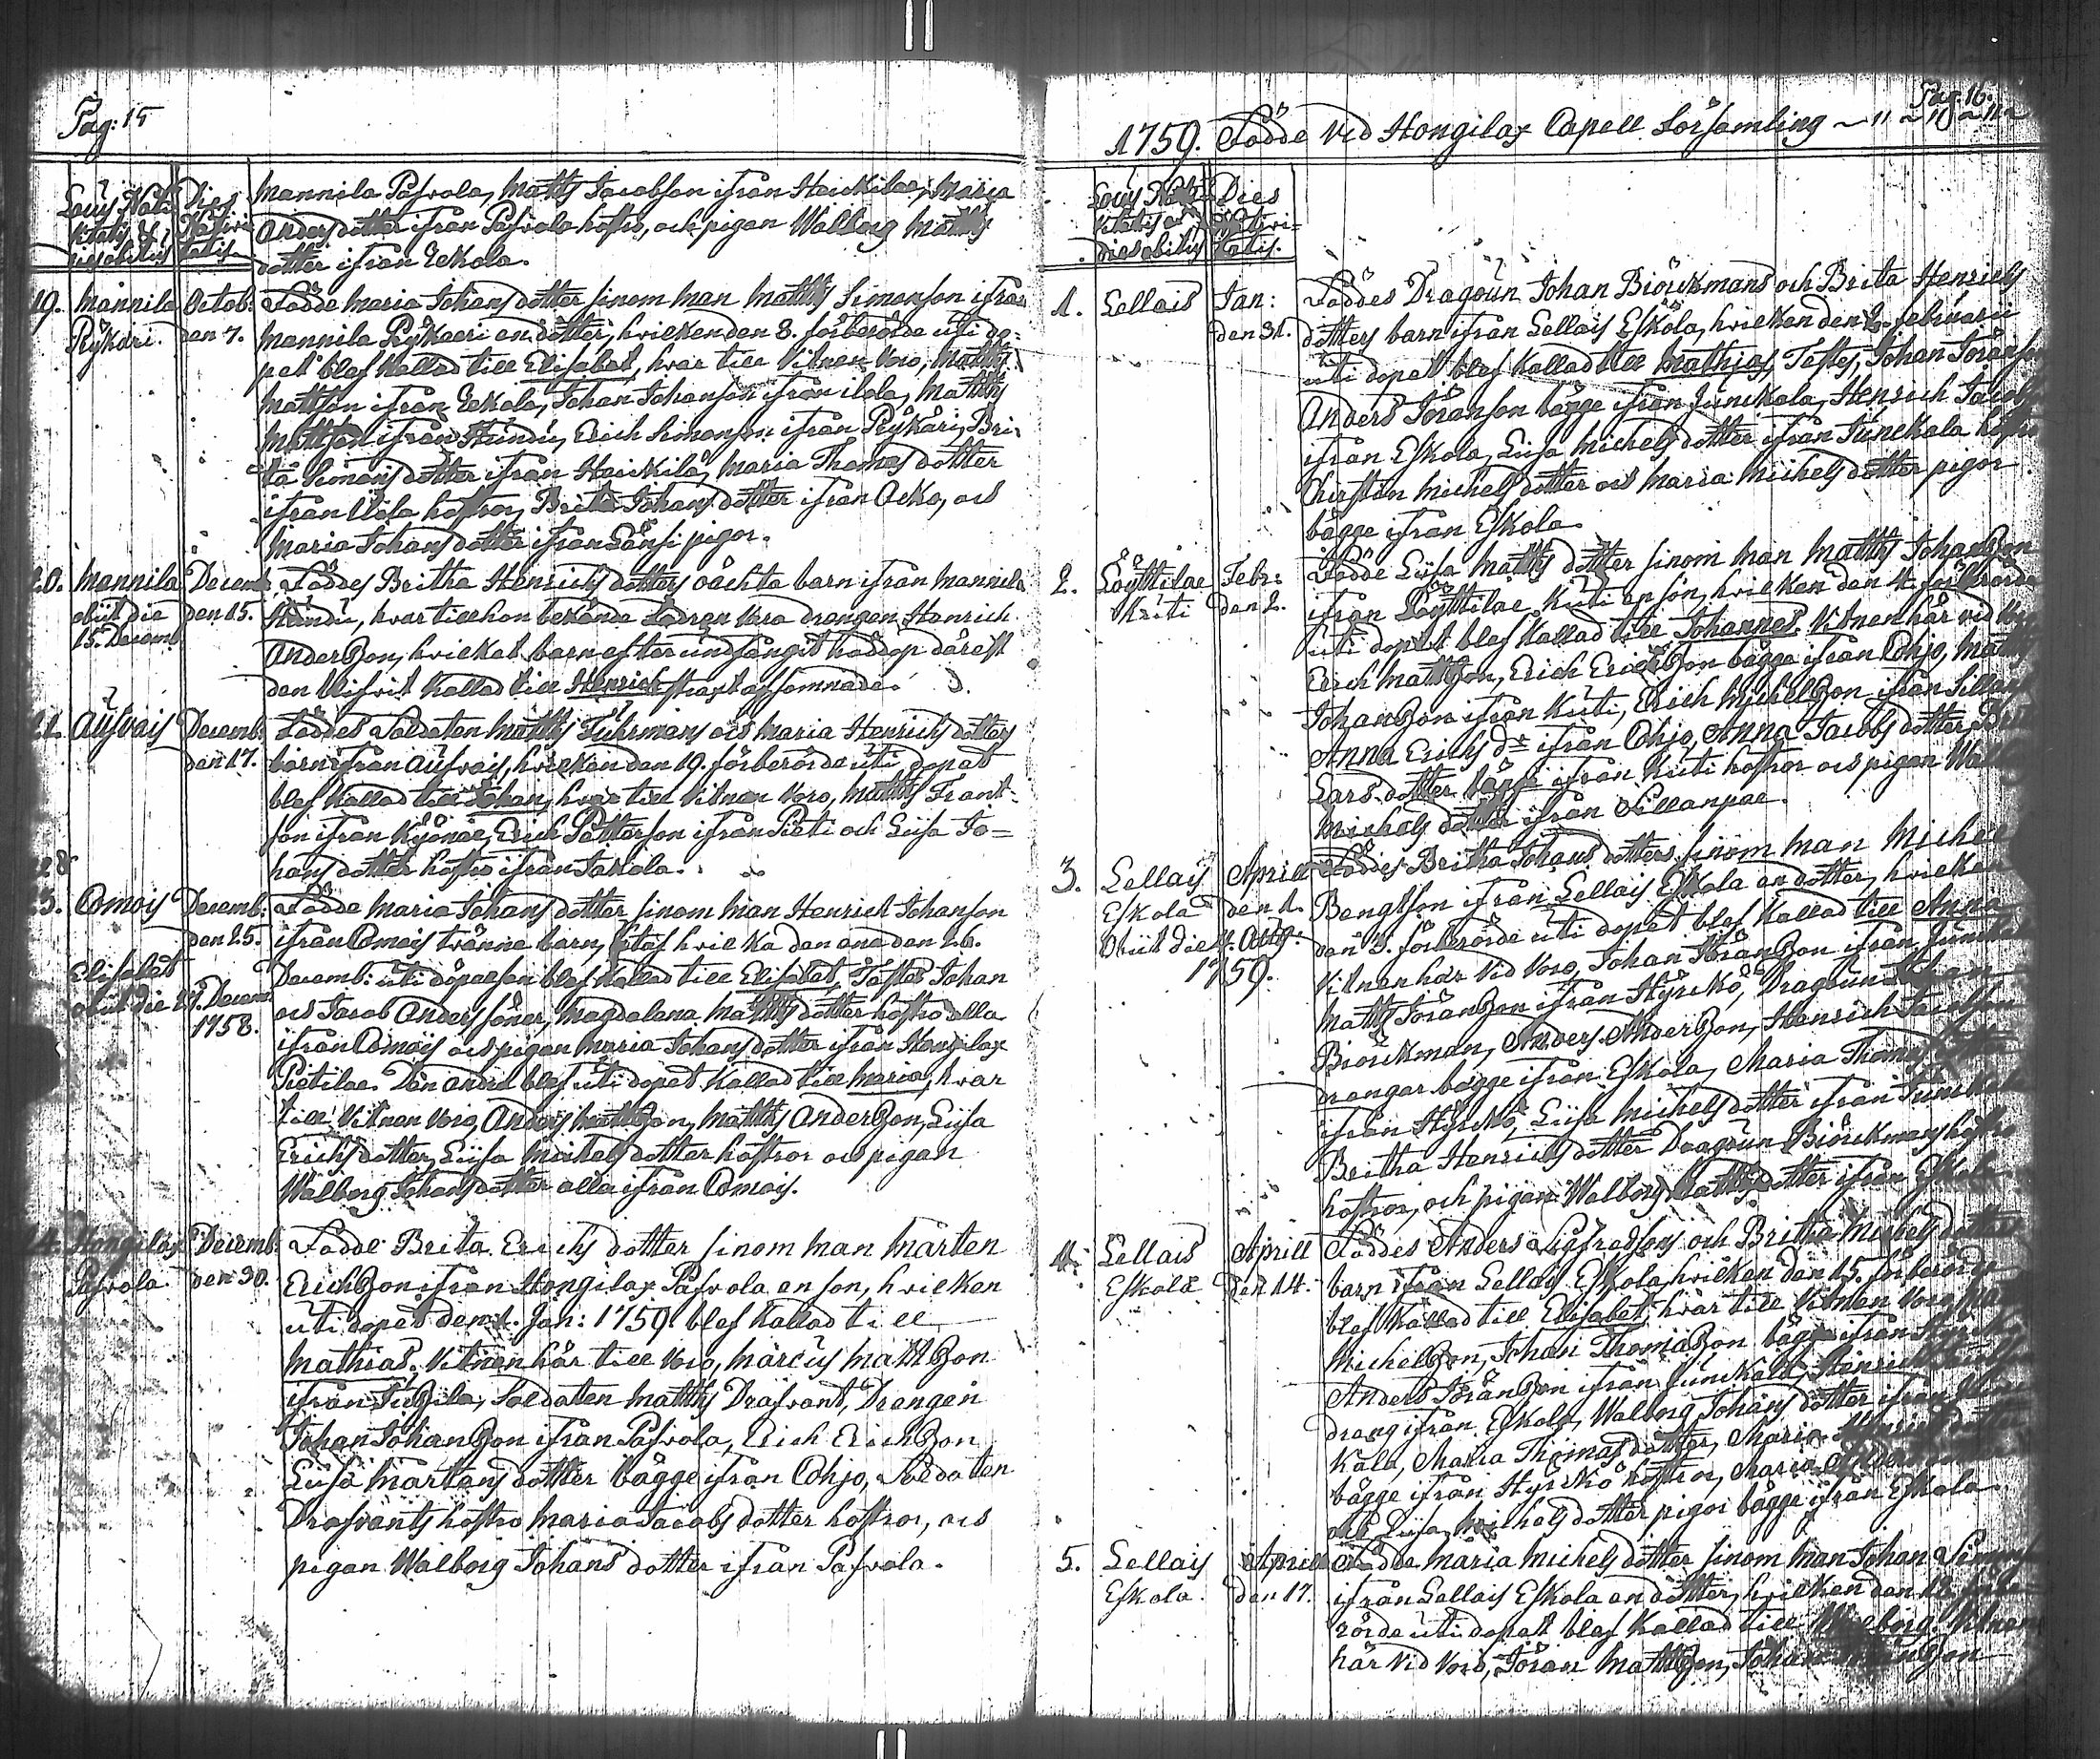 Pag: 15
Locus Nati
vitatis &
dies obitus
Dies
Nativi
tatis
Mannila Pafvola, Matths Jacobson ifrån Heickilae, Maria
Anders dotter ifrån Pafvola hustro, och pigan Walborg Matths
dotter ifrån Eckola.
19. Mannila
Pÿkäri.
Octob:
den 7.
Födde Maria Johans dotter sinom man Matths Simonson ifrån
Mannila Pÿkäeri en dotter, hvilken den 8. förberörde uti do-
pet blef kallad till Elisabet, hvar till vitnen voro, Matths
Mattson ifrån Eckola, Johan Johanson ifrån ilola, Matths
Mattson ifrån Hündü, Erich Simonson ifrån Pÿkäri, Bri-
ta Simons dotter ifrån Heickilä, Maria Thomas dotter
ifrån Ilola hustror, Brita Johans dotter ifrån Ocko, och
Maria Johans dotter ifrån Länsi pigor.
20. Mannila
obiit die
15. Decemb
Decemb.
den 15.
Föddes Britha Henrichs dotters oächta barn ifrån Mannila
Hündü, hvar till hon bekände fadren vara drängen Henrich
Anderßon, hvilket barn efter undfångit nöddop därest
den blifvit kallad till Henrich straxt afsomnade.
21. Aufvais
Decemb:
den 17.
Föddes Soldaten Matths Führmans och Maria Henrichs dotters
barn ifrån Aufvais, hvilken den 19. förberörde uti dopet
blef kallad till Johan, hvar till vitnen voro, Matths Frant-
son ifrån Kÿönäe, Erich Petterson ifrån Pieti och Liisa Jo=
hans dotter hustro ifrån Jakola.
Comois
Decemb:
den 25.
Födde Maria Johans dotter sinom man Henrich Johanson
ifrån Comois tvänne barn, hvilka den ena den 26.
Elisabet
obiit die 27. Decem:
1758.
Decemb: uti döpelsen blef kallad till Elisabet, Testes Johan
och Jacob Anders söner, Magdalena Matths dotter hustro alla
ifrån Comois och pigan Maria Johans dotter ifrån Hongilax
Pietilae. Den andra blef uti dopet kallad till Maria, hvar
till vitnen voro, Anders Mattßon, Matths Anderßon, Liisa
Erichs dotter, Liisa Michels dotter hustror och pigan
Walborg Johans dotter alla ifrån Comois.
Hongilax
Pafvola
Decemb:
den 30.
Födde Brita Erichs dotter sinom man Mårten
Erichßon ifrån Hongilax Pafvola en son, hvilken
uti dopet den 1. Jan: 1759 blef kallad till
Mathias. Vitnen här till voro, Marcus Mattßon
ifrån Soldaten Matths Drafvant, Drängen
Johan Johanßon ifrån Pafvola, Erich Erichßon
Liisa Martens dotter bägge ifrån Ohjo, Soldaten
Drafvants hustro Maria Jacobs dotter hustror, och
pigan Walborg Johans dotter ifrån Pafvola.
Pag. 16.
1759. Födde vid Hongilax Capell Församling
Locus Nati-
vitatis &
dies obitus
Dies
Nativi-
tatis.
1. Lellais
Jan:
den 31.
Föddes Dragoun Johan Biörckmans och Brita Henrichs
dotters barn ifrån Lellais Eskola, hvilken den 2. februarii
uti dopet blef kallad till Mathias, Testes, Johan Jöranson
Anders Jöranson bägge ifrån Junckala, Henrich
ifrån Eskola, Liisa Michels dotter ifrån Junckala
Christin Michels dotter och Maria Michels dotter pigor
bägge ifrån Eskola.
2. Löÿttilae
Kuti
Febr:
den 2.
Födde Liisa Matths dotter sinom man Matths Johanßon
ifrån Löÿttilae Kuti en son, hvilken den 4. förberörde
uti dopet blef kallad till Johannes. Vitnen här vid
Erich Mattßon, Erich Erichßon bägge ifrån Ohjo, Matths
Johanßon ifrån Kuti, Erich Michelßon ifrån
Anna Erichs dr ifrån Ohjo, Anna Jacobs dotter,
Lars dotter bägge ifrån Kuti hustror och pigan
Michels dotter ifrån Sillanpae.
3. Lellais
Eskola
Obiit die 4. Aug:
1759.
Aprill
den 1.
Föddes Britha Johans dotters sinom man Michel
Bengtson ifrån Lellais Eskola en dotter, hvilken
den 3. förberörde uti dopet blef kallad till Anna
Vitnen här vid voro, Johan Jöranßon ifrån
Matths Jöranßon ifrån Hÿrckö, Dragoun Johan
Biörckman, Anders Anderßon, Henrich
drängar bägge ifrån Eskola, Maria Thomas
ifrån Hÿrckö, Liisa Michels dotter ifrån
Britha Henrichs dotter Dragoun Biörckmans
hustror, och pigan Walborg Matths dotter ifrån Eskola
4. Lellais
Eskola
Aprill
den 14.
Föddes Anders Sigfredsons och Britha Michels dotters
barn ifrån Lellais Eskola, hvilken den 15. förberörde
blef kallad till Elisabet, hvar till vitnen voro
Michelßon, Johan Thomaßon bägge ifrån
Anders Jöranßon ifrån Junckala, Henrich
dräng ifrån Eskola, Walborg Johans dotter ifrån
kala, Maria Thomas dotter, Maria
bägge ifrån Hÿrckö hustror, Maria
och Liisa Michels dotter pigor bägge ifrån Eskola
5. Lellais
Eskola.
Aprill
den 17.
Födde Maria Michels dotter sinom man Johan
ifrån Lellais Eskola en dotter, hvilken den
rörde uti dopet blef kallad till Walborg. Vitnen
här vid voro, Jöran Mattßon, Johan